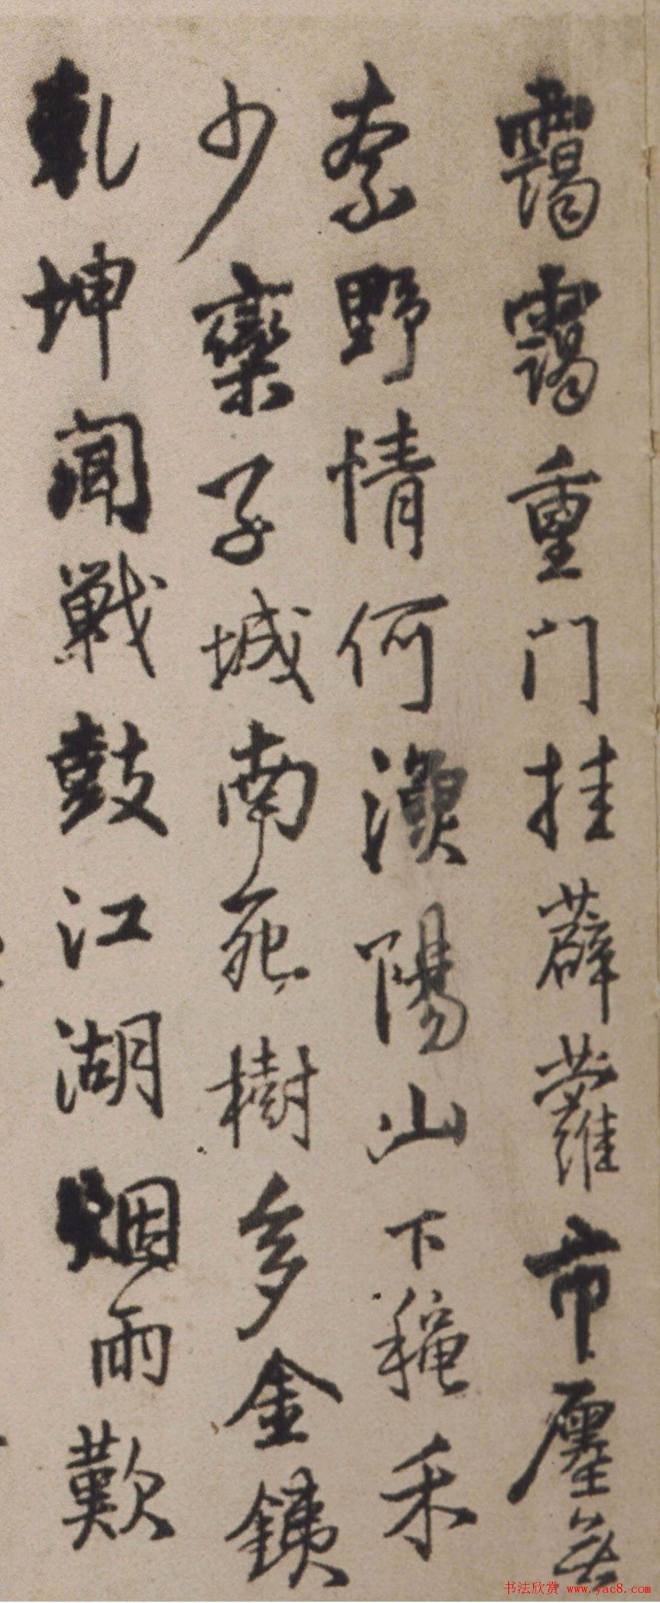 靄靄重门挂薜蘿市廛若
柰野情何漁陽山下穐禾
少欒子城南死樹多金銕
乹坤聞戰鼓江湖烟雨歎
书法欣赏 www.yac8.com